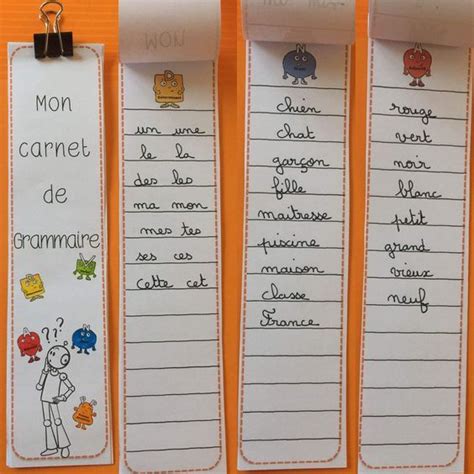 Mon
carnet
de
Grammaire
???
un une
le la
des les
ma mon
mes tes
ses ces
cette cet
chien
chat
garçon
fille
maîtresse
piscine
maison
classe
France
rouge
vert
noir
blanc
petit
grand
vieux
neuf